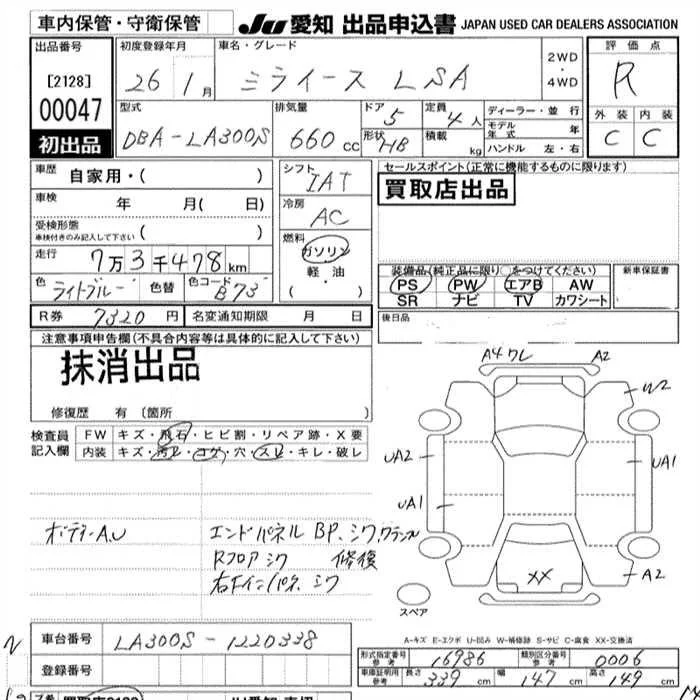 車内保管・守衛保管
JU 愛知 出品申込書 JAPAN USED CAR DEALERS ASSOCIATION
出品番号 [2128] 00047 初出品
初度登録年月 26 1月
車名・グレード ミライース LSA
2WD・4WD
評価点 R
外装 C 内装 C
型式 DBA-LA300S
排気量 660 cc
ドア 5 形状 HB
定員 4人 積載 kg
ディーラー・並行
モデル年式 年
ハンドル 左・右
車歴 自家用・( )
車検 年 月( 日)
受検形態 ( )
車検付きのみ記入して下さい
走行 7万3千478km
色 ライトブルー 色替 色コード B73
R券 7320円 名変通知期限 月 日
シフト IAT
冷房 AC
燃料 ガソリン 軽油 ( ・ )
セールスポイント(正常に機能するものに限ります)
買取店出品
装備品(純正品に限り○をつけてください)
PS PW エアB AW
SR ナビ TV カワシート
新車保証書
後日品
注意事項申告欄(不具合内容等は具体的に記入して下さい)
抹消出品
修復歴 有 〔箇所 〕
検査員記入欄
FW キズ・飛石・ヒビ割・リペア跡・X要
内装 キズ・汚レ・コゲ・穴・スレ・キレ・破レ
ボデーA,U
エンドパネル BP、シワ、クランル
Rフロア シワ 修復
右下インパネ シワ
A4ワレ A2
W2
UA2
UA1
UA1
XX
A2
スペア
A-キズ E-エクボ U-凹み W-補修跡 S-サビ C-腐食 XX-交換済
車台番号 LA300S-1220338
登録番号
形式指定番号 参考 16986 類別区分番号 参考 0006
車庫証明用 参考 長さ 339cm 幅 147cm 高さ 149cm